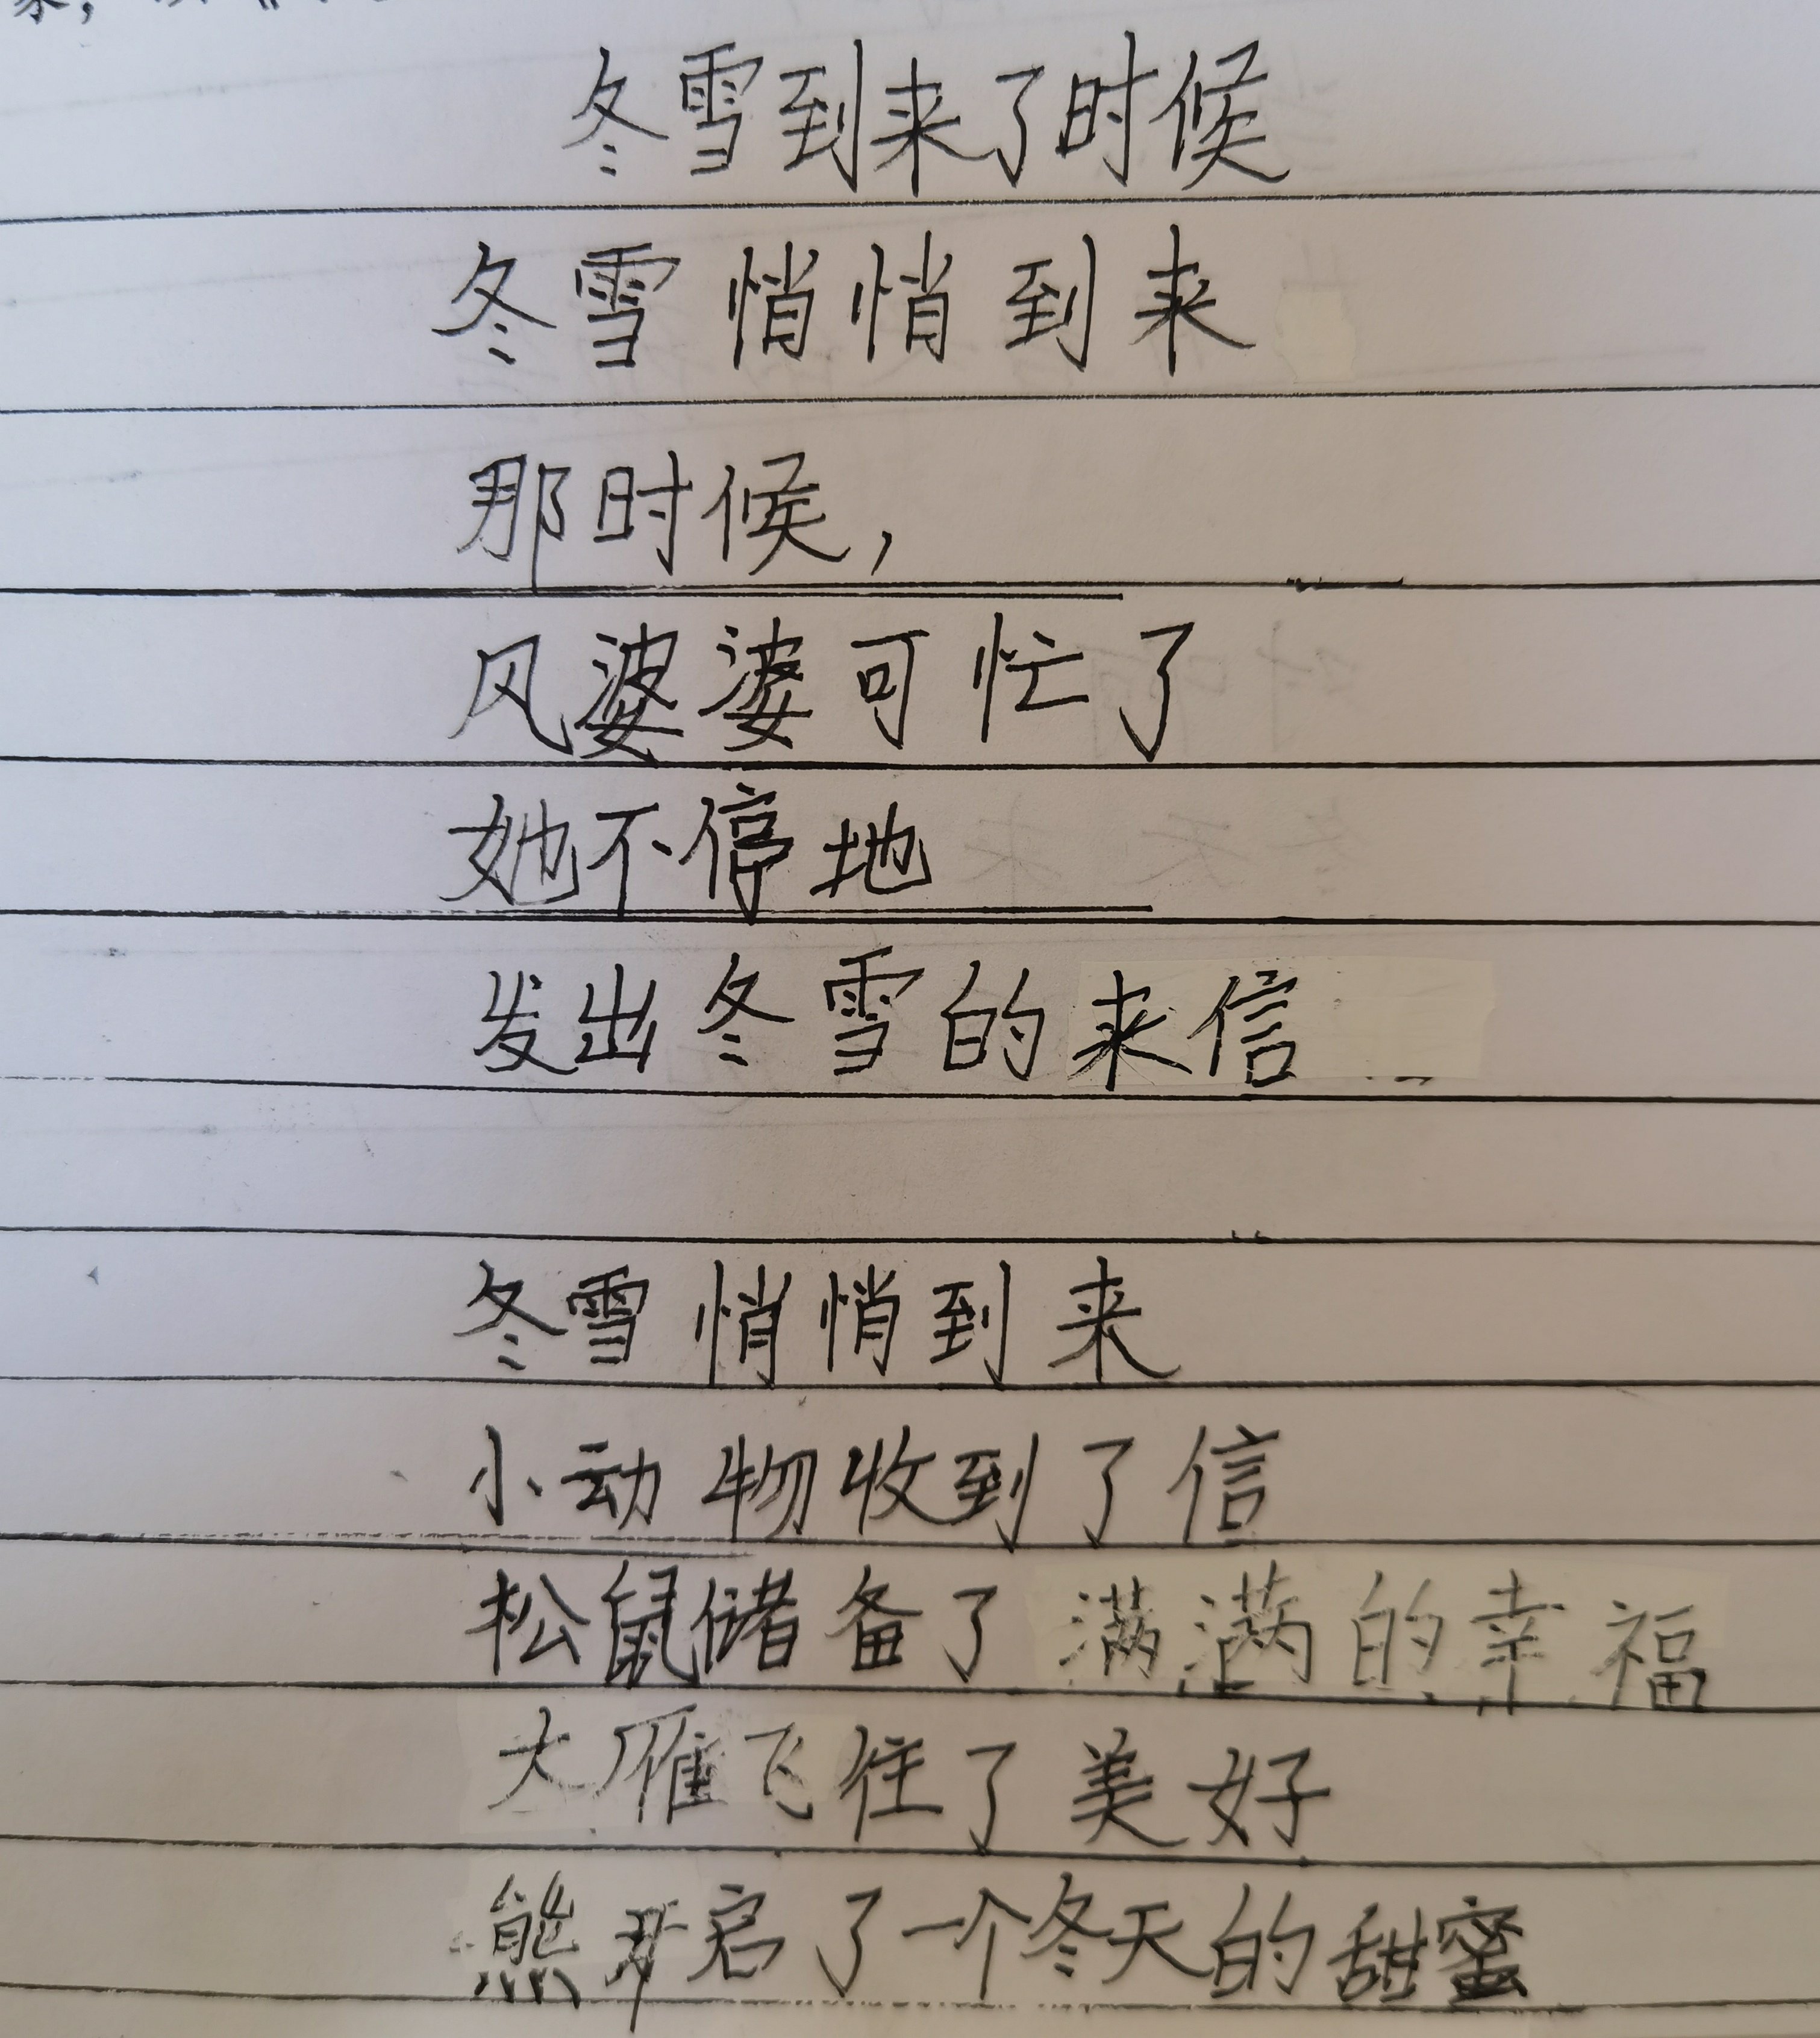 冬雪到来了时候
冬雪悄悄到来
那时候，
风婆婆可忙了
她不停地
发出冬雪的来信
冬雪悄悄到来
小动物收到了信
松鼠储备了满满的幸福
大雁飞往了美好
熊开启了一个冬天的甜蜜